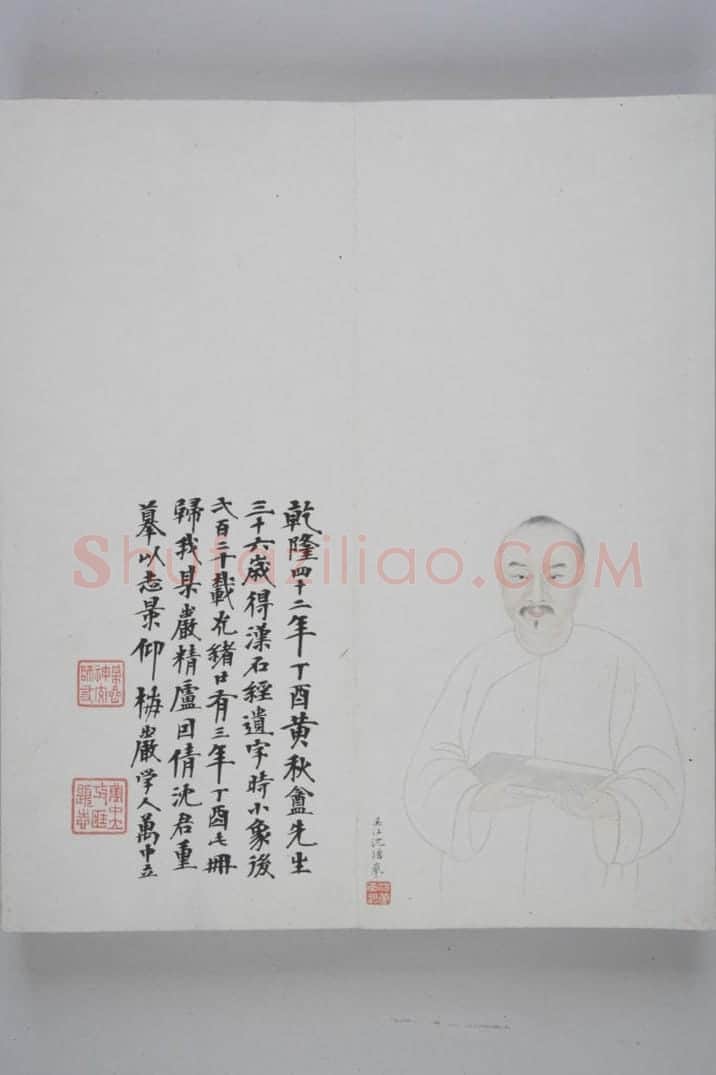 吳江沈塘摹
乾隆四十二年丁酉黃秋盦先生
三十六歲得漢石經遺字時小象後
弌百二十載光緒廿有三年丁酉此冊
歸我某巖精廬因倩沈君重
摹以志景仰 梅巖学人萬中立
Shufaziliao.COM